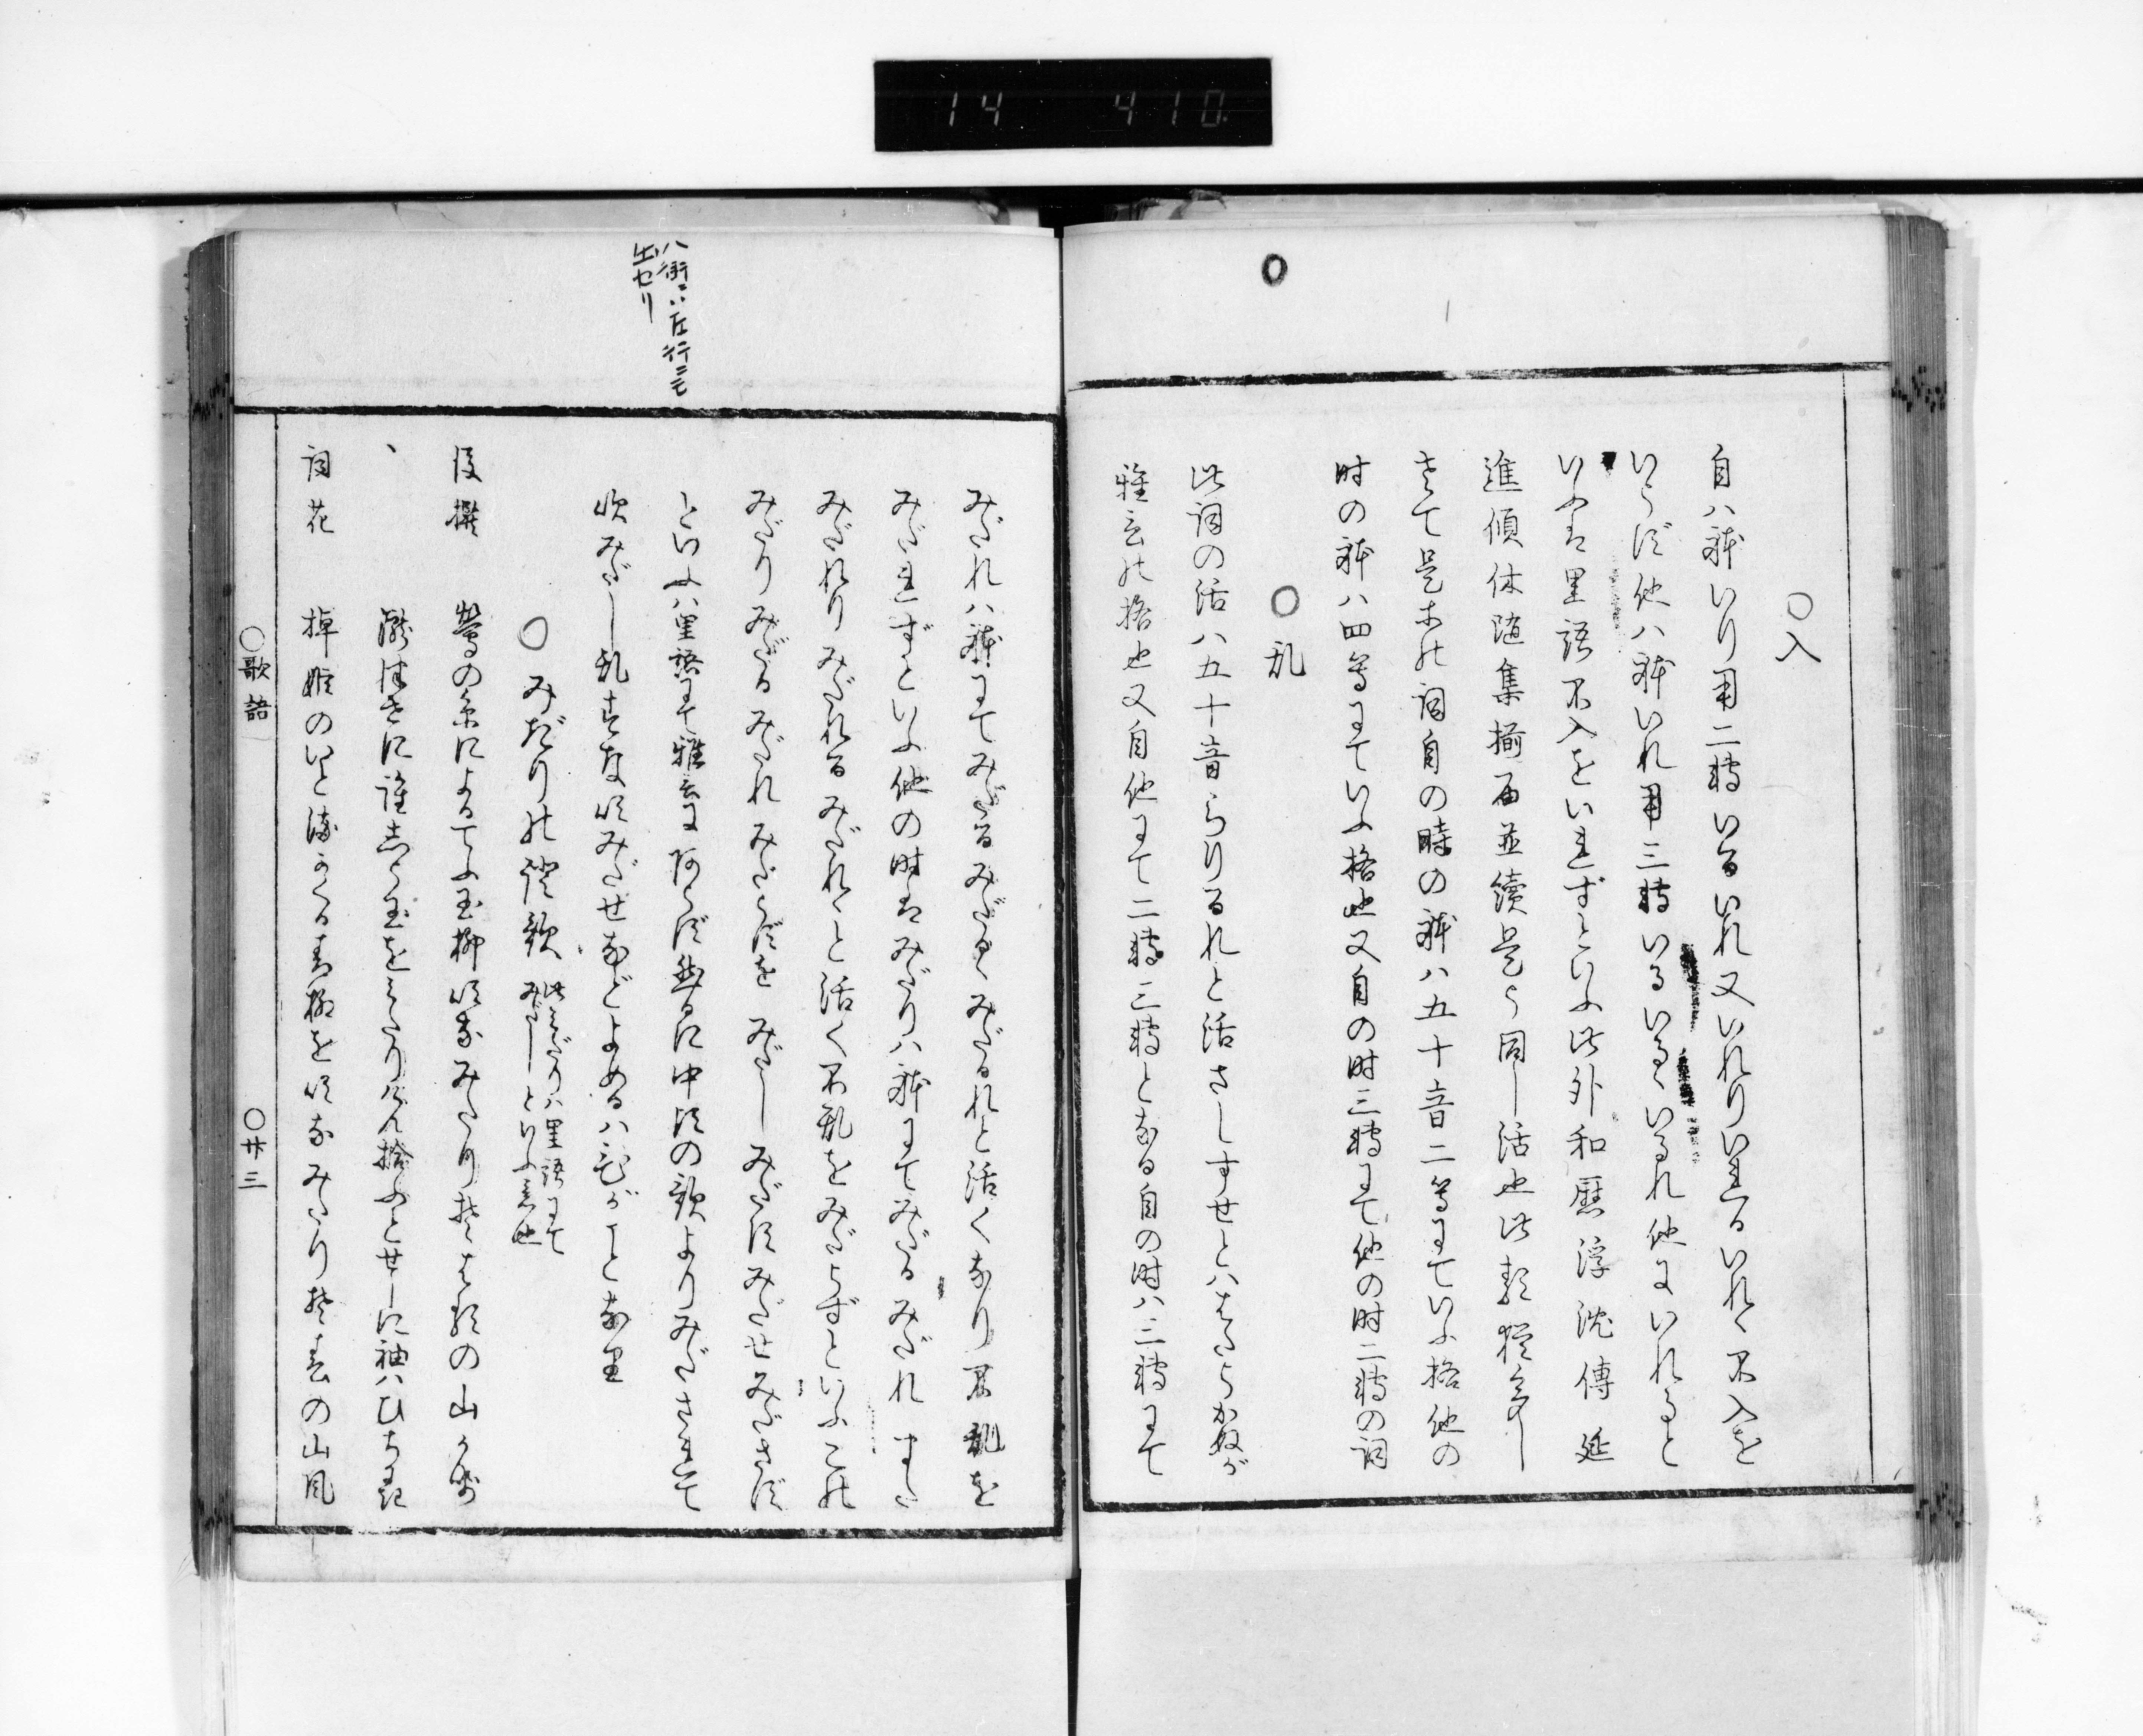 14 410
○入
自ハ躰いり用二轉いるいれ又いれりいれるいれゝ不入を
いらず他ハ躰いれ用三轉いるいるゝいるれ他にいれると
いふは里語不入をいれずといふ此外和歴浮沈傳延
進傾休随集揃届並續是ら同じ活也此類猶多し
さて是等の詞自の時の躰ハ五十音二等にていふ格他の
时の躰ハ四等にていふ格也又自の时三轉にて他の时二轉の詞
○乱
此詞の活ハ五十音らりるれと活さしすせとハはたらかぬが
雅言の格也又自他にて二轉三轉となる自の时ハ三轉にて
みだれハ躰にてみだるみだるゝみだるれと活くなり不乱を
みだれずといふ他の时はみだりハ躰にてみだるみだれ
みだれりみだれるみだれゝと活く不乱をみだらずといふこの
みだりみだるみだれみだらずを みだしみだすみだせみださず
といふハ里語にて雅言にあらず然るに中古の歌よりみだされて
吹みだし乱すな 吹みだせなどよめるハひがことなり
○みだりの證歌 此みだりハ里語にて
みだしといふ意也
後撰 鶯の糸によるてふ玉柳吹なみだりそ春の山かぜ
、 瀧津せに誰しら玉をみだりけん拾ふとせしに袖ハひちにき
詞花 棹姫のいと染かくる青柳を吹なみだりそ春の山風
○歌語 ○廿三
八街ニハ左行ニモ
出セリ